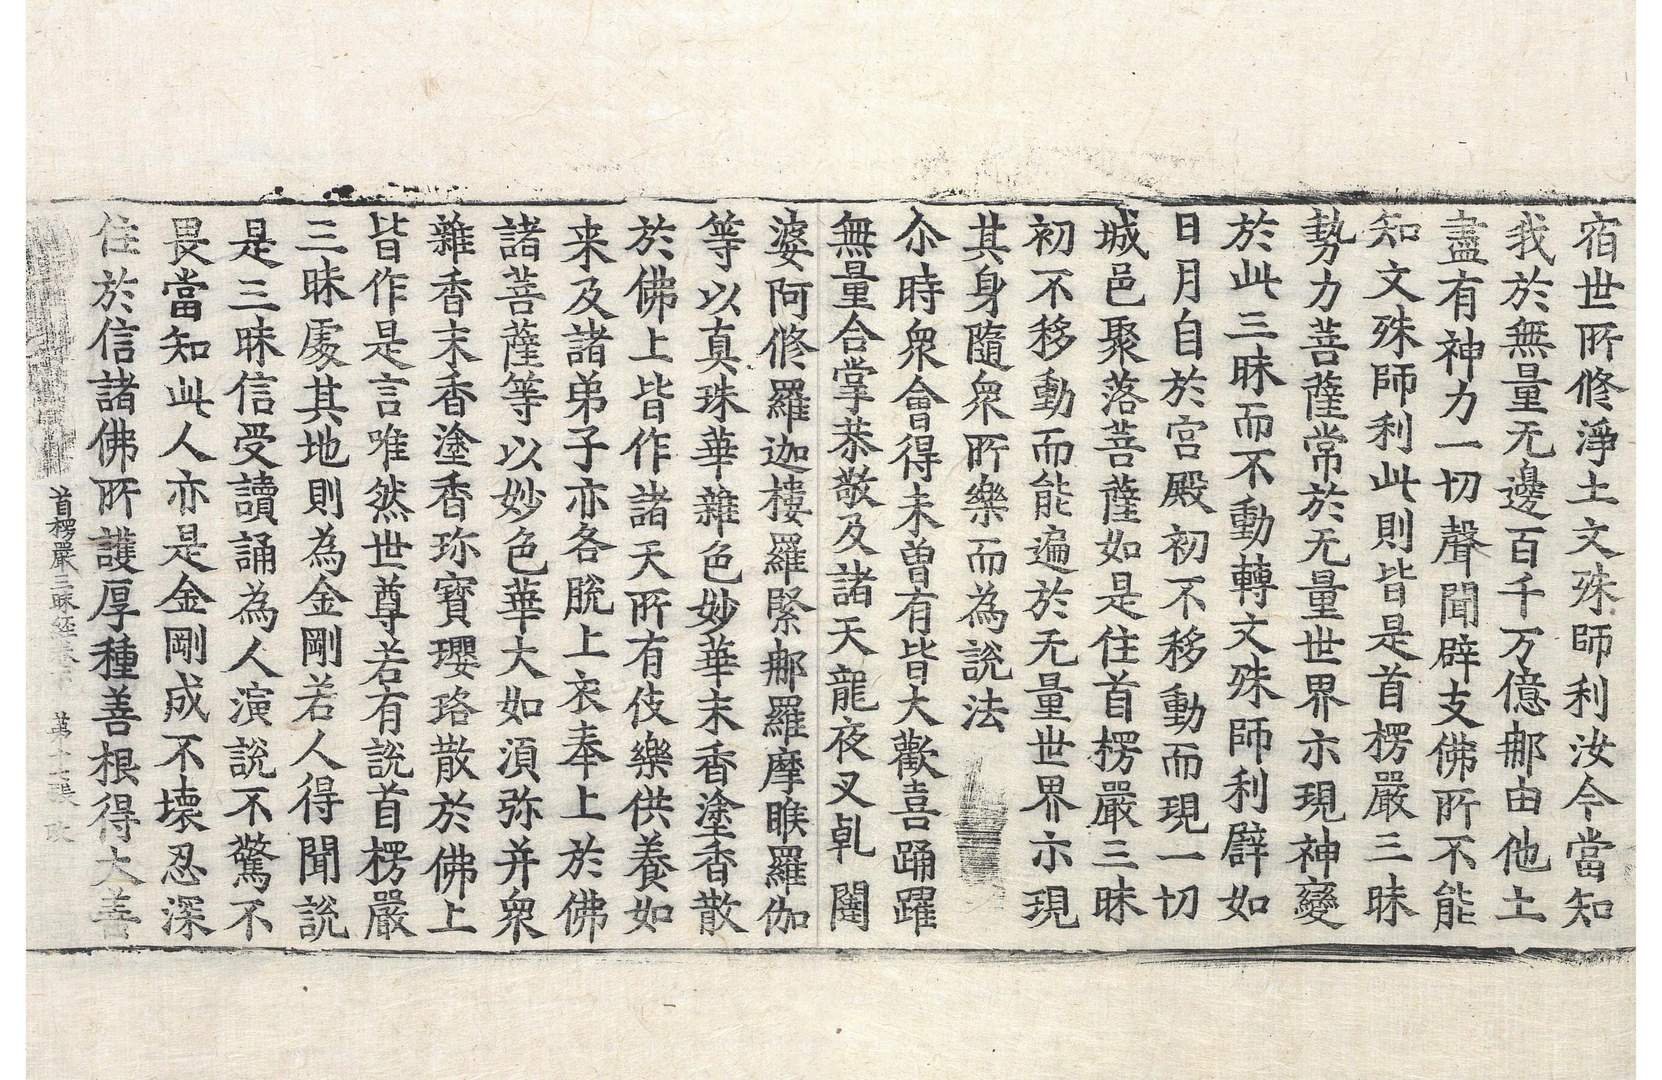 宿世所修淨土文殊師利汝今當知
我於無量无邊百千万億郍由他土
盡有神力一切聲聞辟支佛所不能
知文殊師利此則皆是首楞嚴三昧
勢力菩薩常於无量世界示現神變
於此三昧而不動轉文殊師利譬如
日月自於宮殿初不移動而現一切
城邑聚落菩薩如是住首楞嚴三昧
初不移動而能遍於无量世界示現
其身隨衆所樂而為說法
尒時衆會得未曾有皆大歡喜踊躍
無量合掌恭敬及諸天龍夜叉乹闥
婆阿修羅迦樓羅緊郍羅摩睺羅伽
等以真珠華雜色妙華末香塗香散
於佛上皆作諸天所有伎樂供養如
来及諸弟子亦各脫上衣奉上於佛
諸菩薩等以妙色華大如湏弥并衆
雜香末香塗香珎寶瓔珞散於佛上
皆作是言唯然世尊若有說首楞嚴
三昧處其地則為金剛若人得聞說
是三昧信受讀誦為人演說不驚不
畏當知此人亦是金剛成不壞忍深
住於信諸佛所護厚種善根得大善
首楞嚴三昧経卷下 第十二張